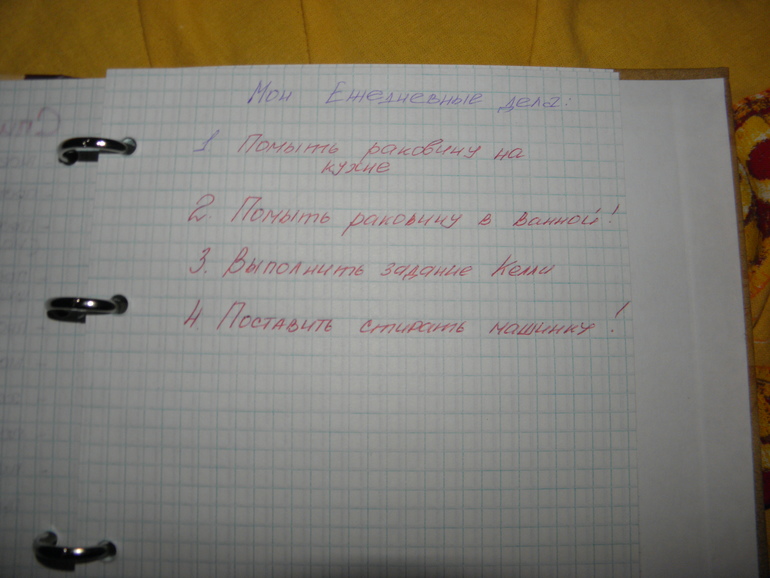 Мои Ежедневные дела:
1 Помыть раковину на
кухне
2. Помыть раковину в ванной!
3. Выполнить задание Келли
4. Поставить стирать машинку!